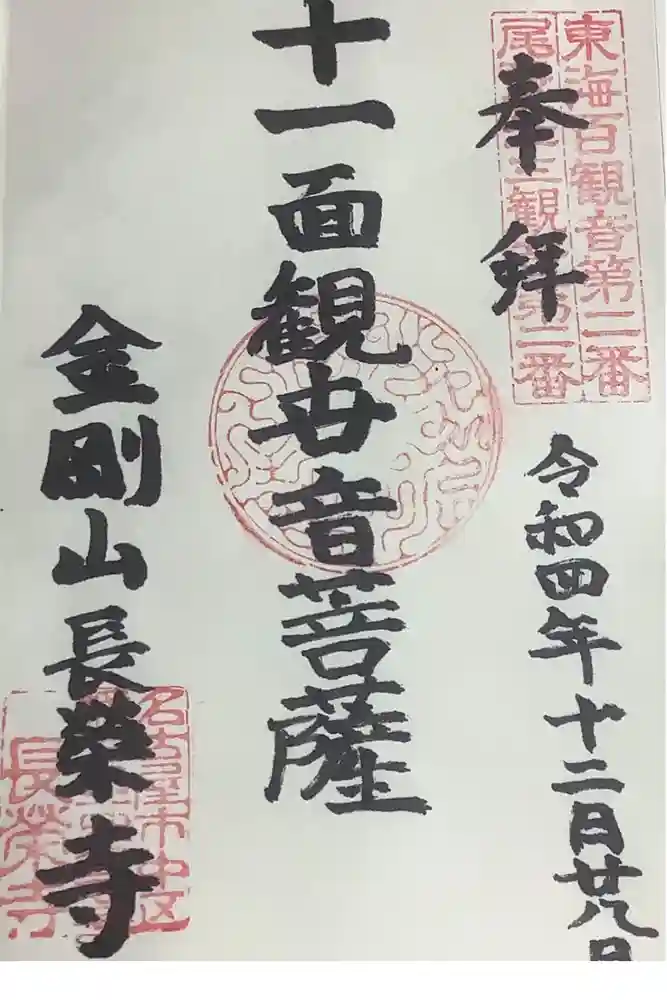 東海百観音第二番
尾 三観 第二番
奉拝
令和四年十二月廿八日
十一面観世音菩薩
金剛山長榮寺
名古屋市中区
長榮寺